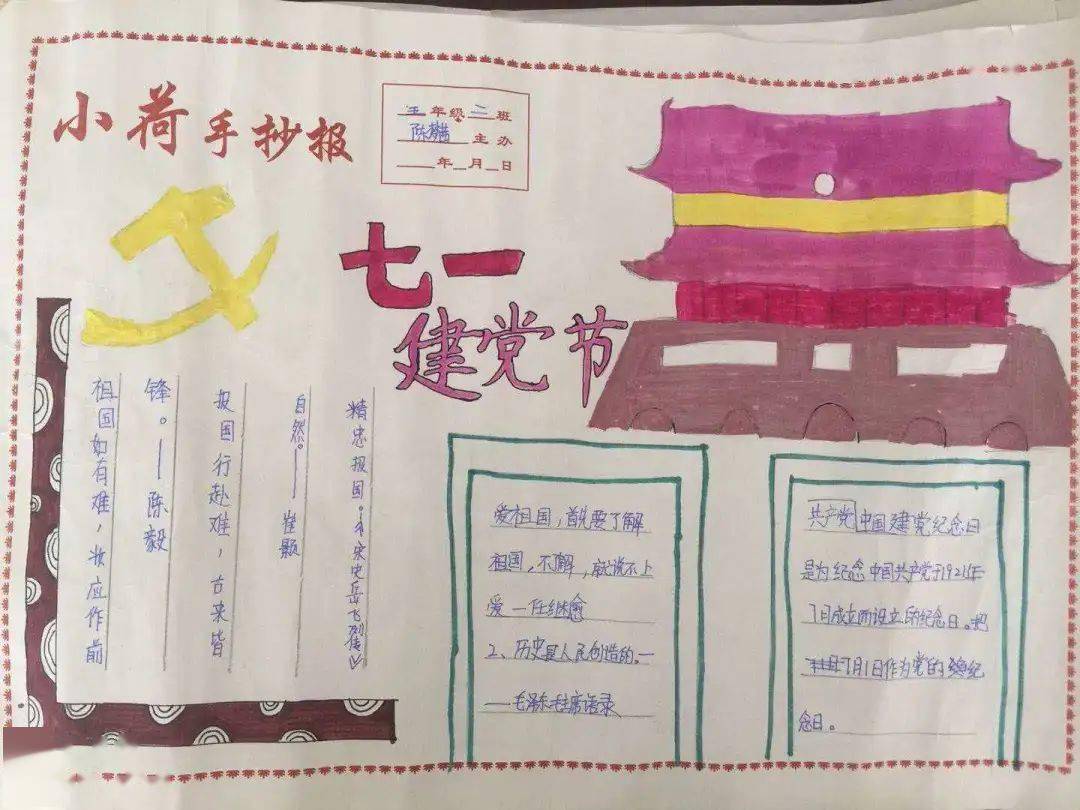 小荷手抄报
五年级二班
陈 主办
年 月 日
七一
建党节
祖国如有难，汝应作前
锋。——陈毅
报国行赴难，古来皆
自然。——崔颢
精忠报国。宋史岳飞列传
爱祖国，首先要了解
祖国，不解，就说不上
爱 一任继愈
2、历史是人民创造的。一
一毛泽东主席语录
共产党 中国建党纪念日
是为纪念中国共产党于1921年
7月成立而设立的纪念日。把
7月1日作为党的 纪
念日。